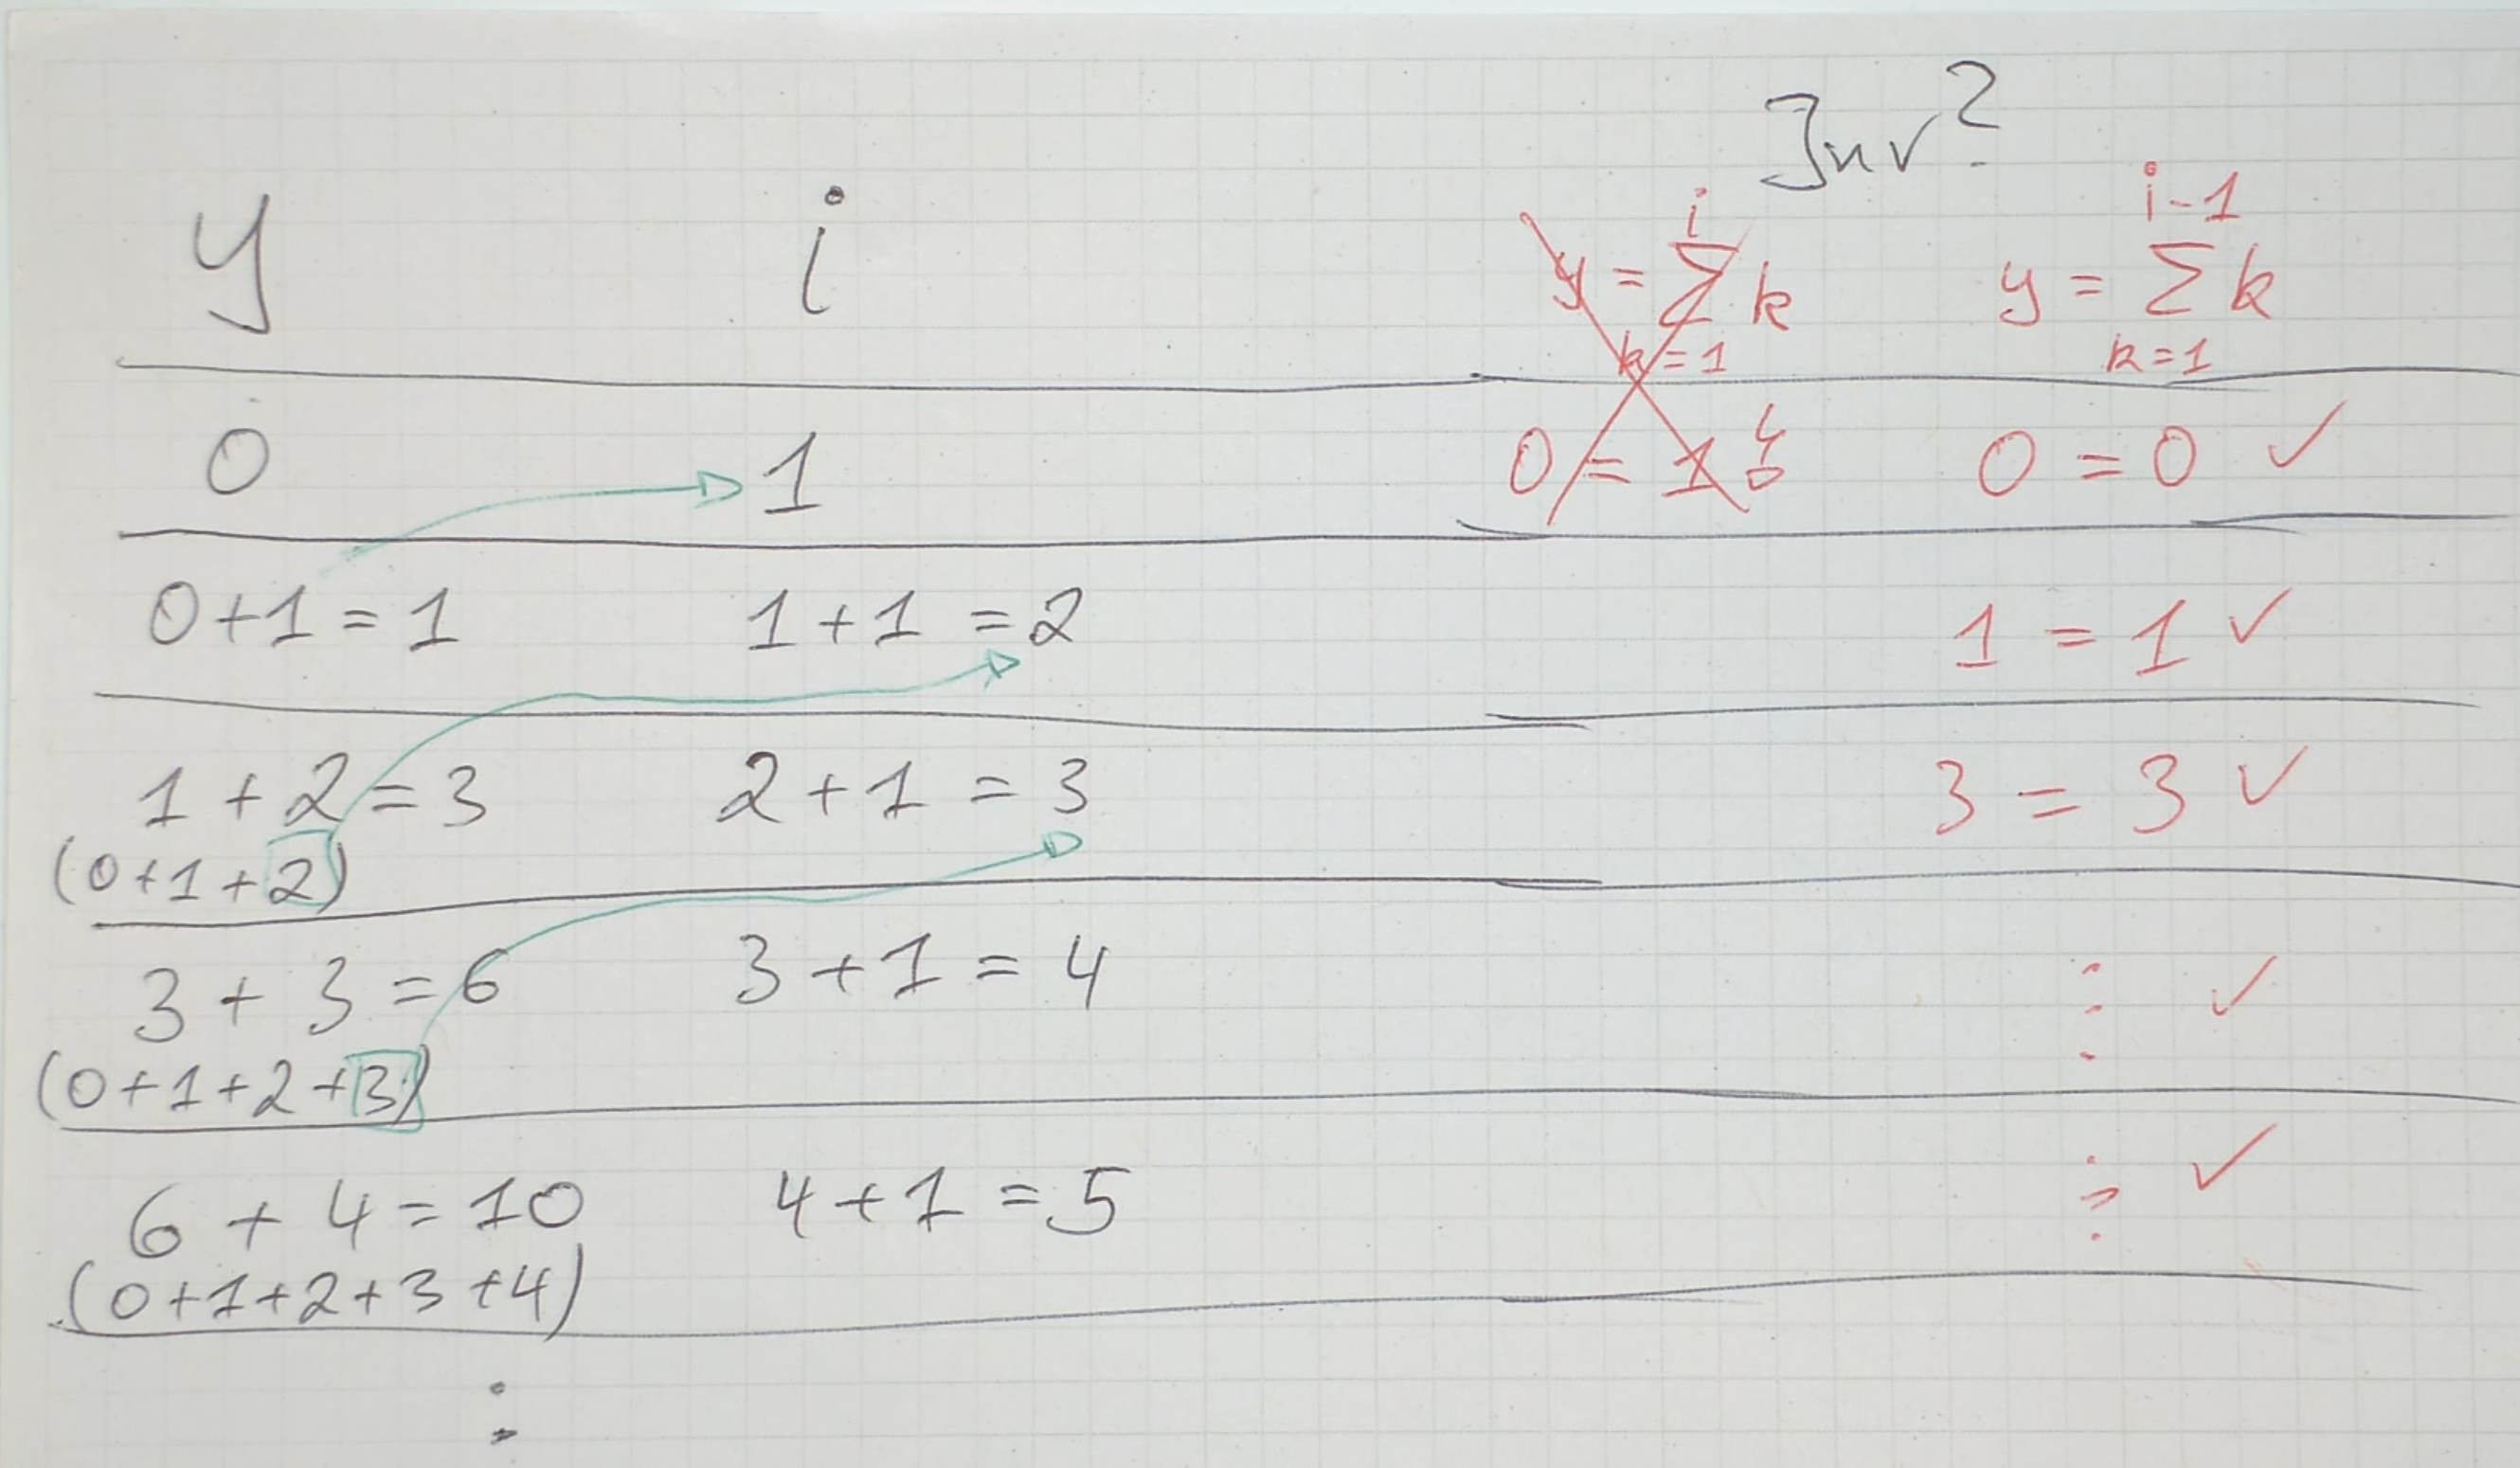 Inv?
y i y = ∑_{k=1}^{i} k y = ∑_{k=1}^{i-1} k
0 1 0 = 1 ↯ 0 = 0 ✓
0+1=1 1+1=2 1 = 1 ✓
1+2=3 2+1=3 3 = 3 ✓
(0+1+2)
3+3=6 3+1=4 ⋮ ✓
(0+1+2+3)
6+4=10 4+1=5 ⋮ ✓
(0+1+2+3+4)
⋮